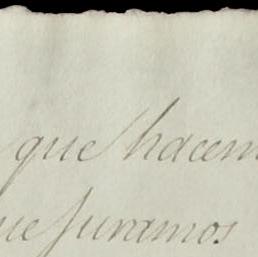 que hacem
ue juramos